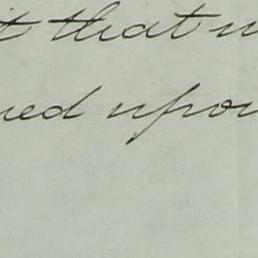 t that
ned upon